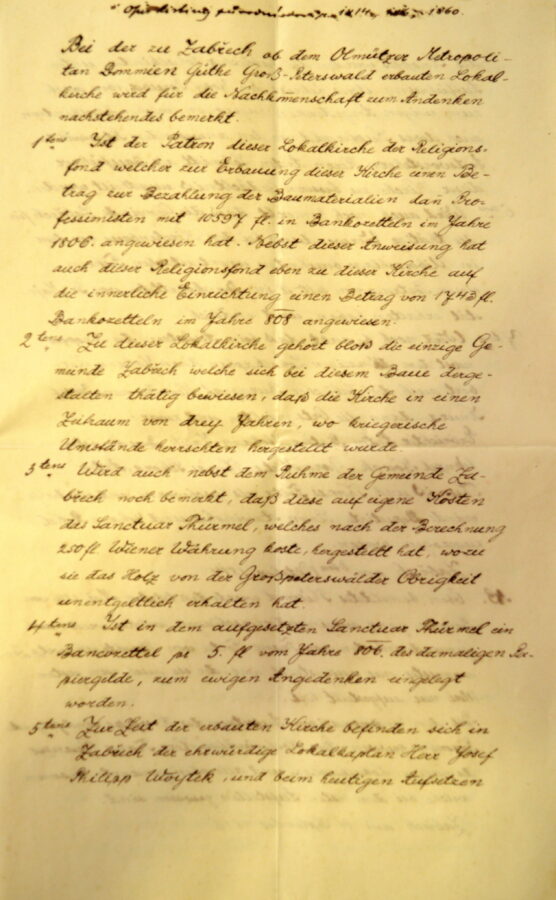 1860.
Bei der zu Zabřech, ob dem Olmützer Metropoli-
tan Dommien Gutke Groß-Peterswald erbauten Lokal-
kirche wird für die Nachkom̅enschaft zum Andenken
nachstehendes bemerkt.
1tens Ist der Patron dieser Lokalkirche der Religions-
fond welcher zur Erbauung dieser Kirche einen Be-
trag zur Bezahlung der Baumaterialien dan Pro-
fessimisten mit 10597 fl. in Bankozetteln im Jahre
1806. angewiesen hat. Nebst dieser Anweisung hat
auch dieser Religionsfond eben zu dieser Kirche auf
die innerliche Einrichtung einen Betrag von 1743 fl.
Bankozetteln im Jahre 808 angewiesen.
2tens Zu dieser Lokalkirche gehört bloß die einzige Ge-
meinde Zabřech welche sich bei diesem Baue derge-
stalten thätig bewiesen, daß die Kirche in einen
Zeitraum von drey Jahren, wo kriegerische
Umstände herrschten hergestellt wurde.
3tens Wird auch nebst dem Ruhme der Gemeinde Za-
břech noch bemerkt, daß diese auf eigene Kösten
des Sanctuar Thürmel, welches nach der Berechnung
250 fl. Wiener Währung koste, hergestellt hat, wozu
sie das Holz von der Großpeterswälder Obrigkeit
unentgeltlich erhalten hat.
4tens Ist in dem aufgesetzten Sanctuar Thürmel ein
Bancozettel pr 5. fl vom Jahre 806. des damaligen Pa-
piergelde, zum ewigen Angedenken eingelegt
worden.
5tens Zur Zeit der erbauten Kirche befinden sich in
Zabřech der ehrwürdige Lokalkaplan Herr Josef
Philipp Woytek, und beim heutigen Aufsetzen